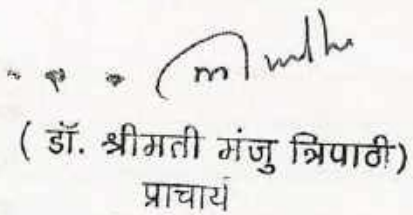 ( डॉ. श्रीमती मंजु त्रिपाठी)
प्राचार्य